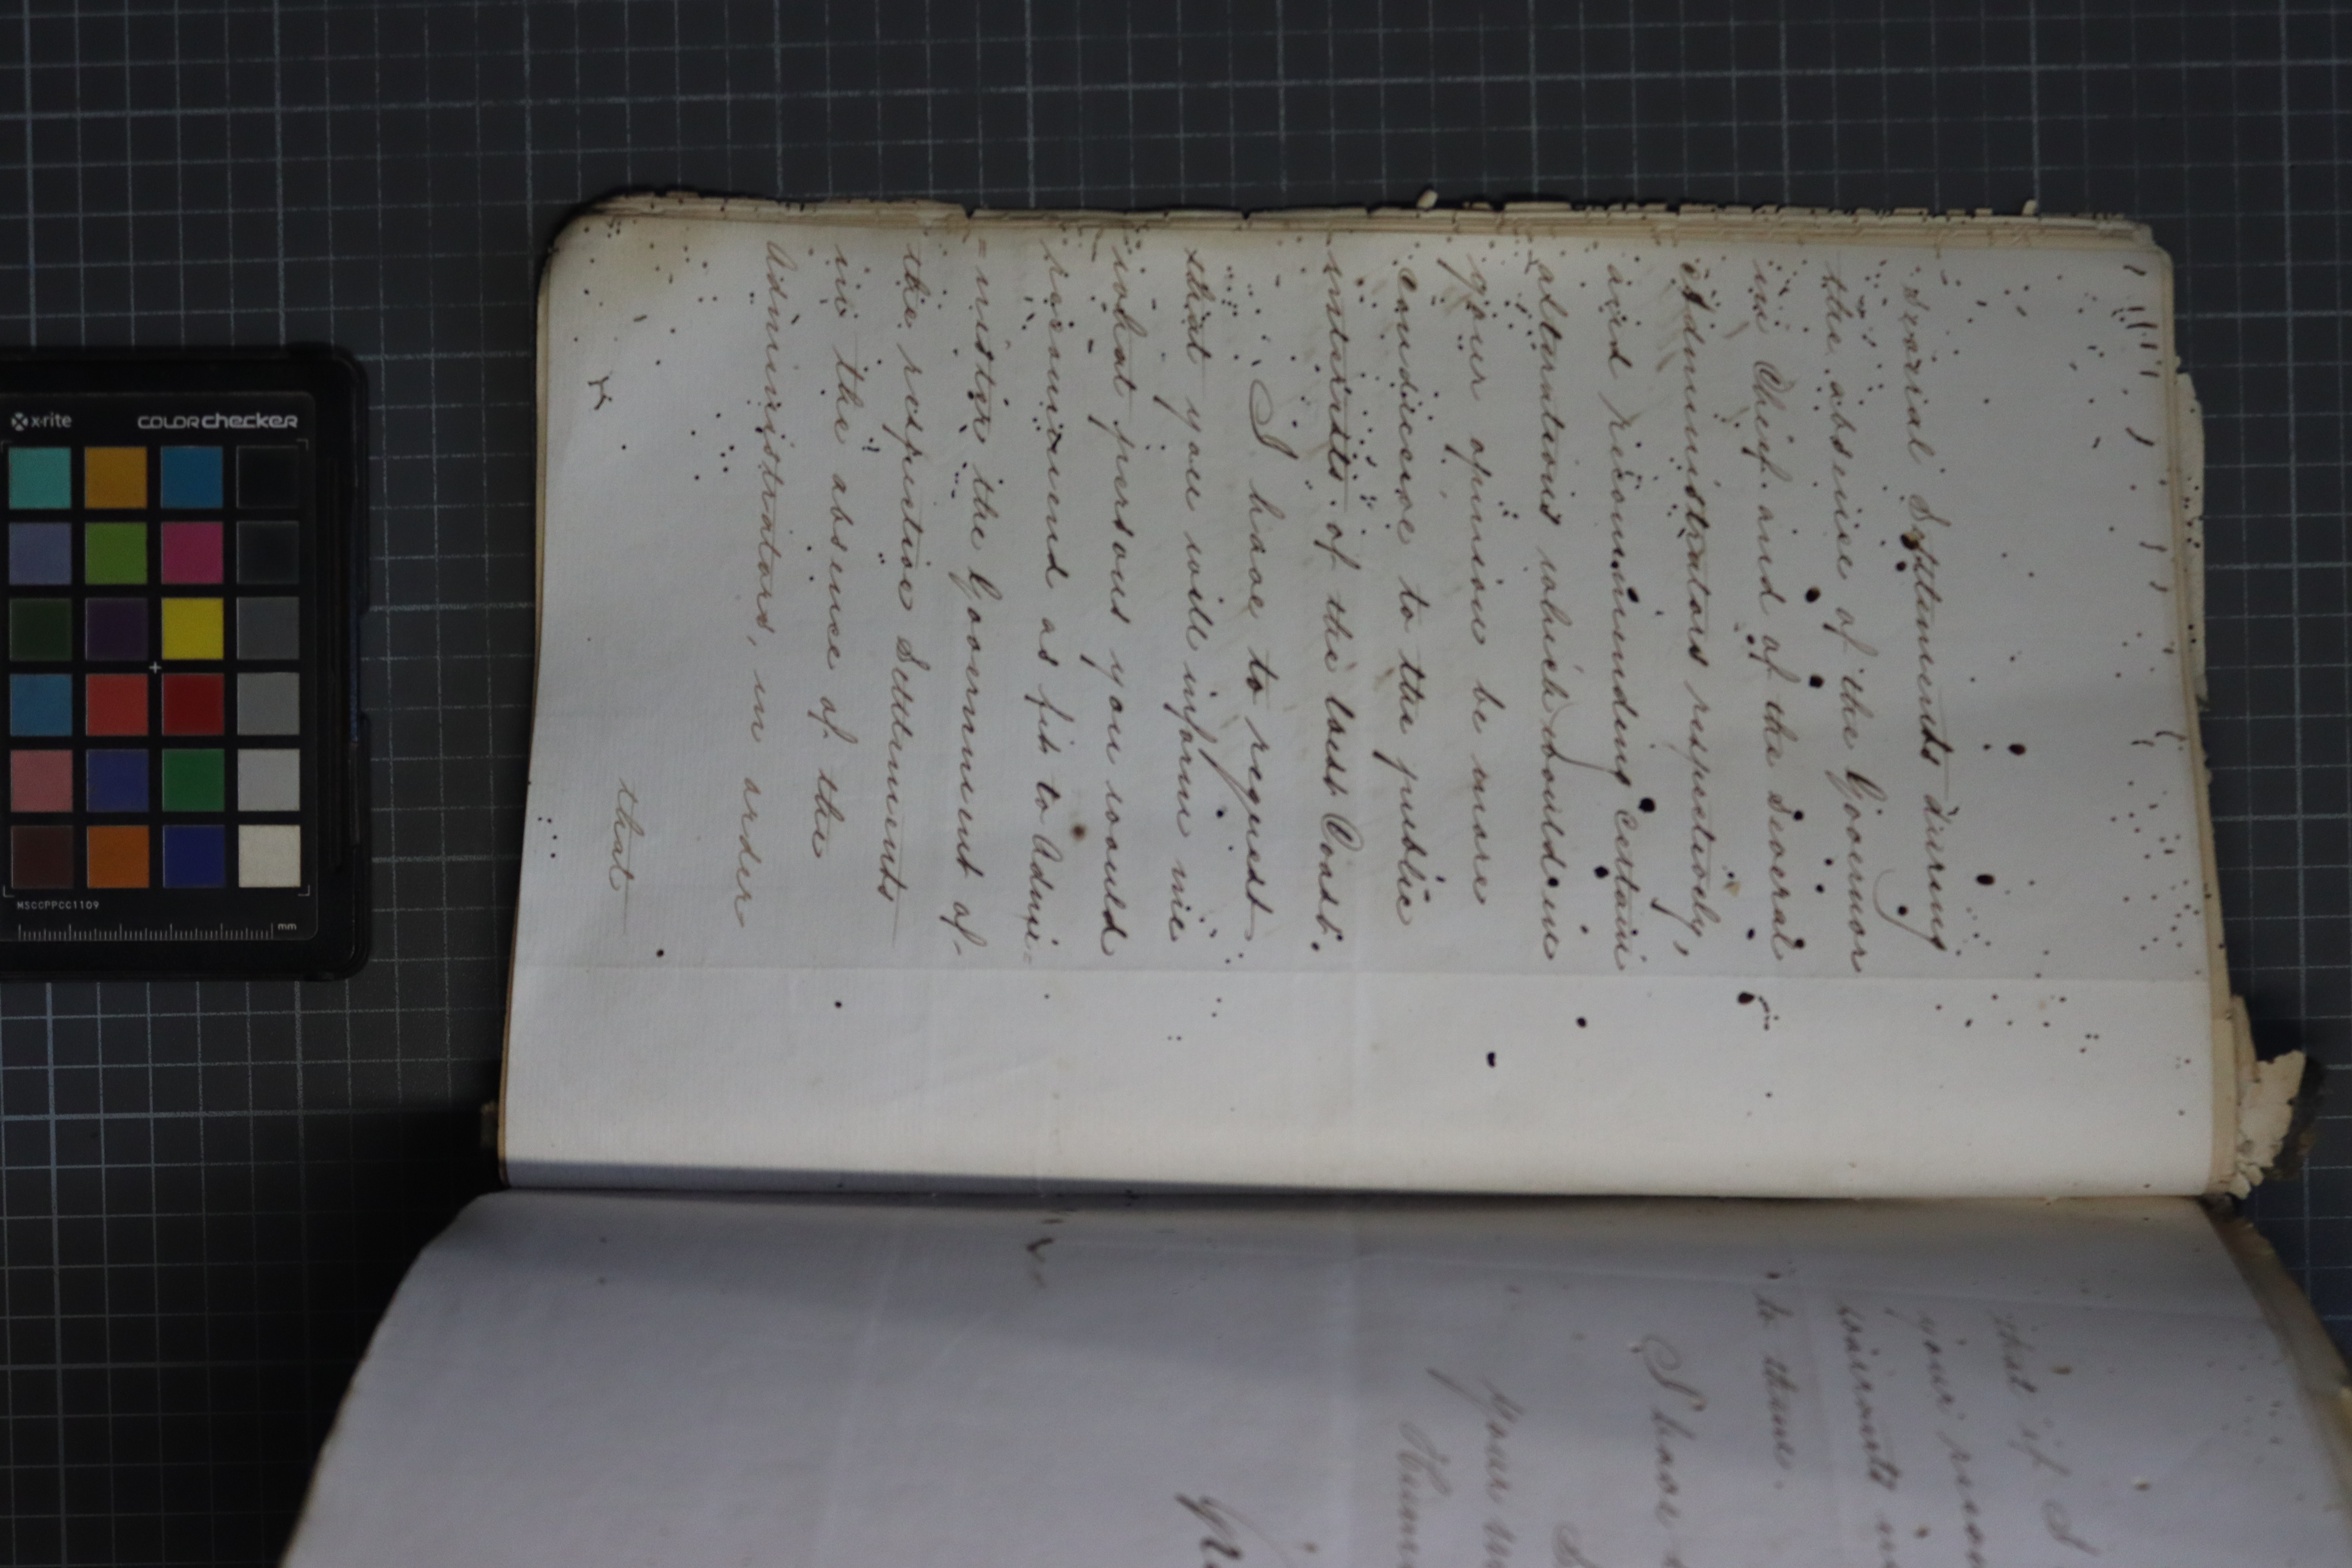 several Settlements during
the absence of the Governor
in Chief and of the Several
Administrators respectively,
and recommending certain
alterations which would in
your opinion be more
conducive to the public
interests of the Gold Coast.
I have to request
that you will inform me
what persons you would
recommend as fit to Admi-
=nister the Government of
the respective Settlements
in the absence of the
Administrators, in order
that
that if I
your
warrants
to them.
I have
your
x-rite
colorchecker
MSCCPPCC1109
mm